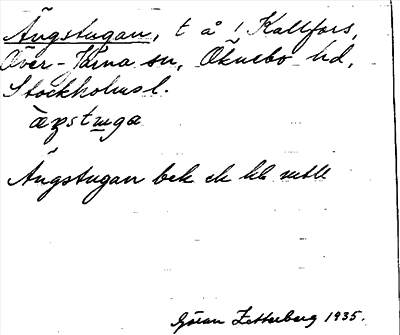 Ängstugan, t å i Kallfors,
Över-Järna sn, Öknebo hd,
Stockholmsl.
Ängstugan bek ek
Göran Zetterberg 1935.